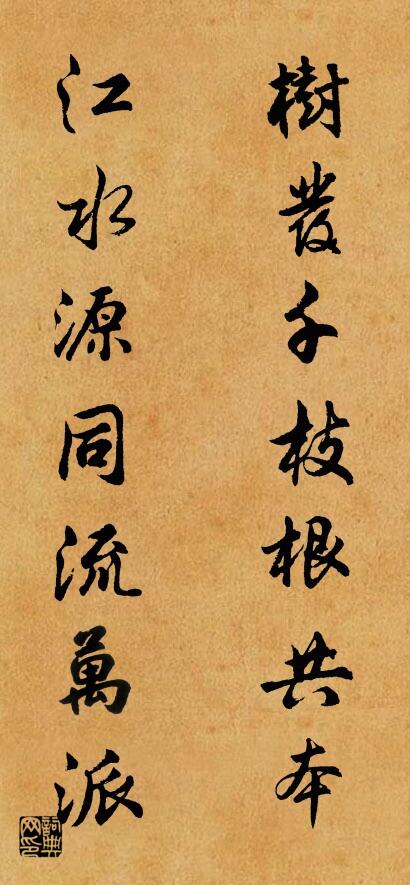 樹發千枝根共本
江水源同流萬派